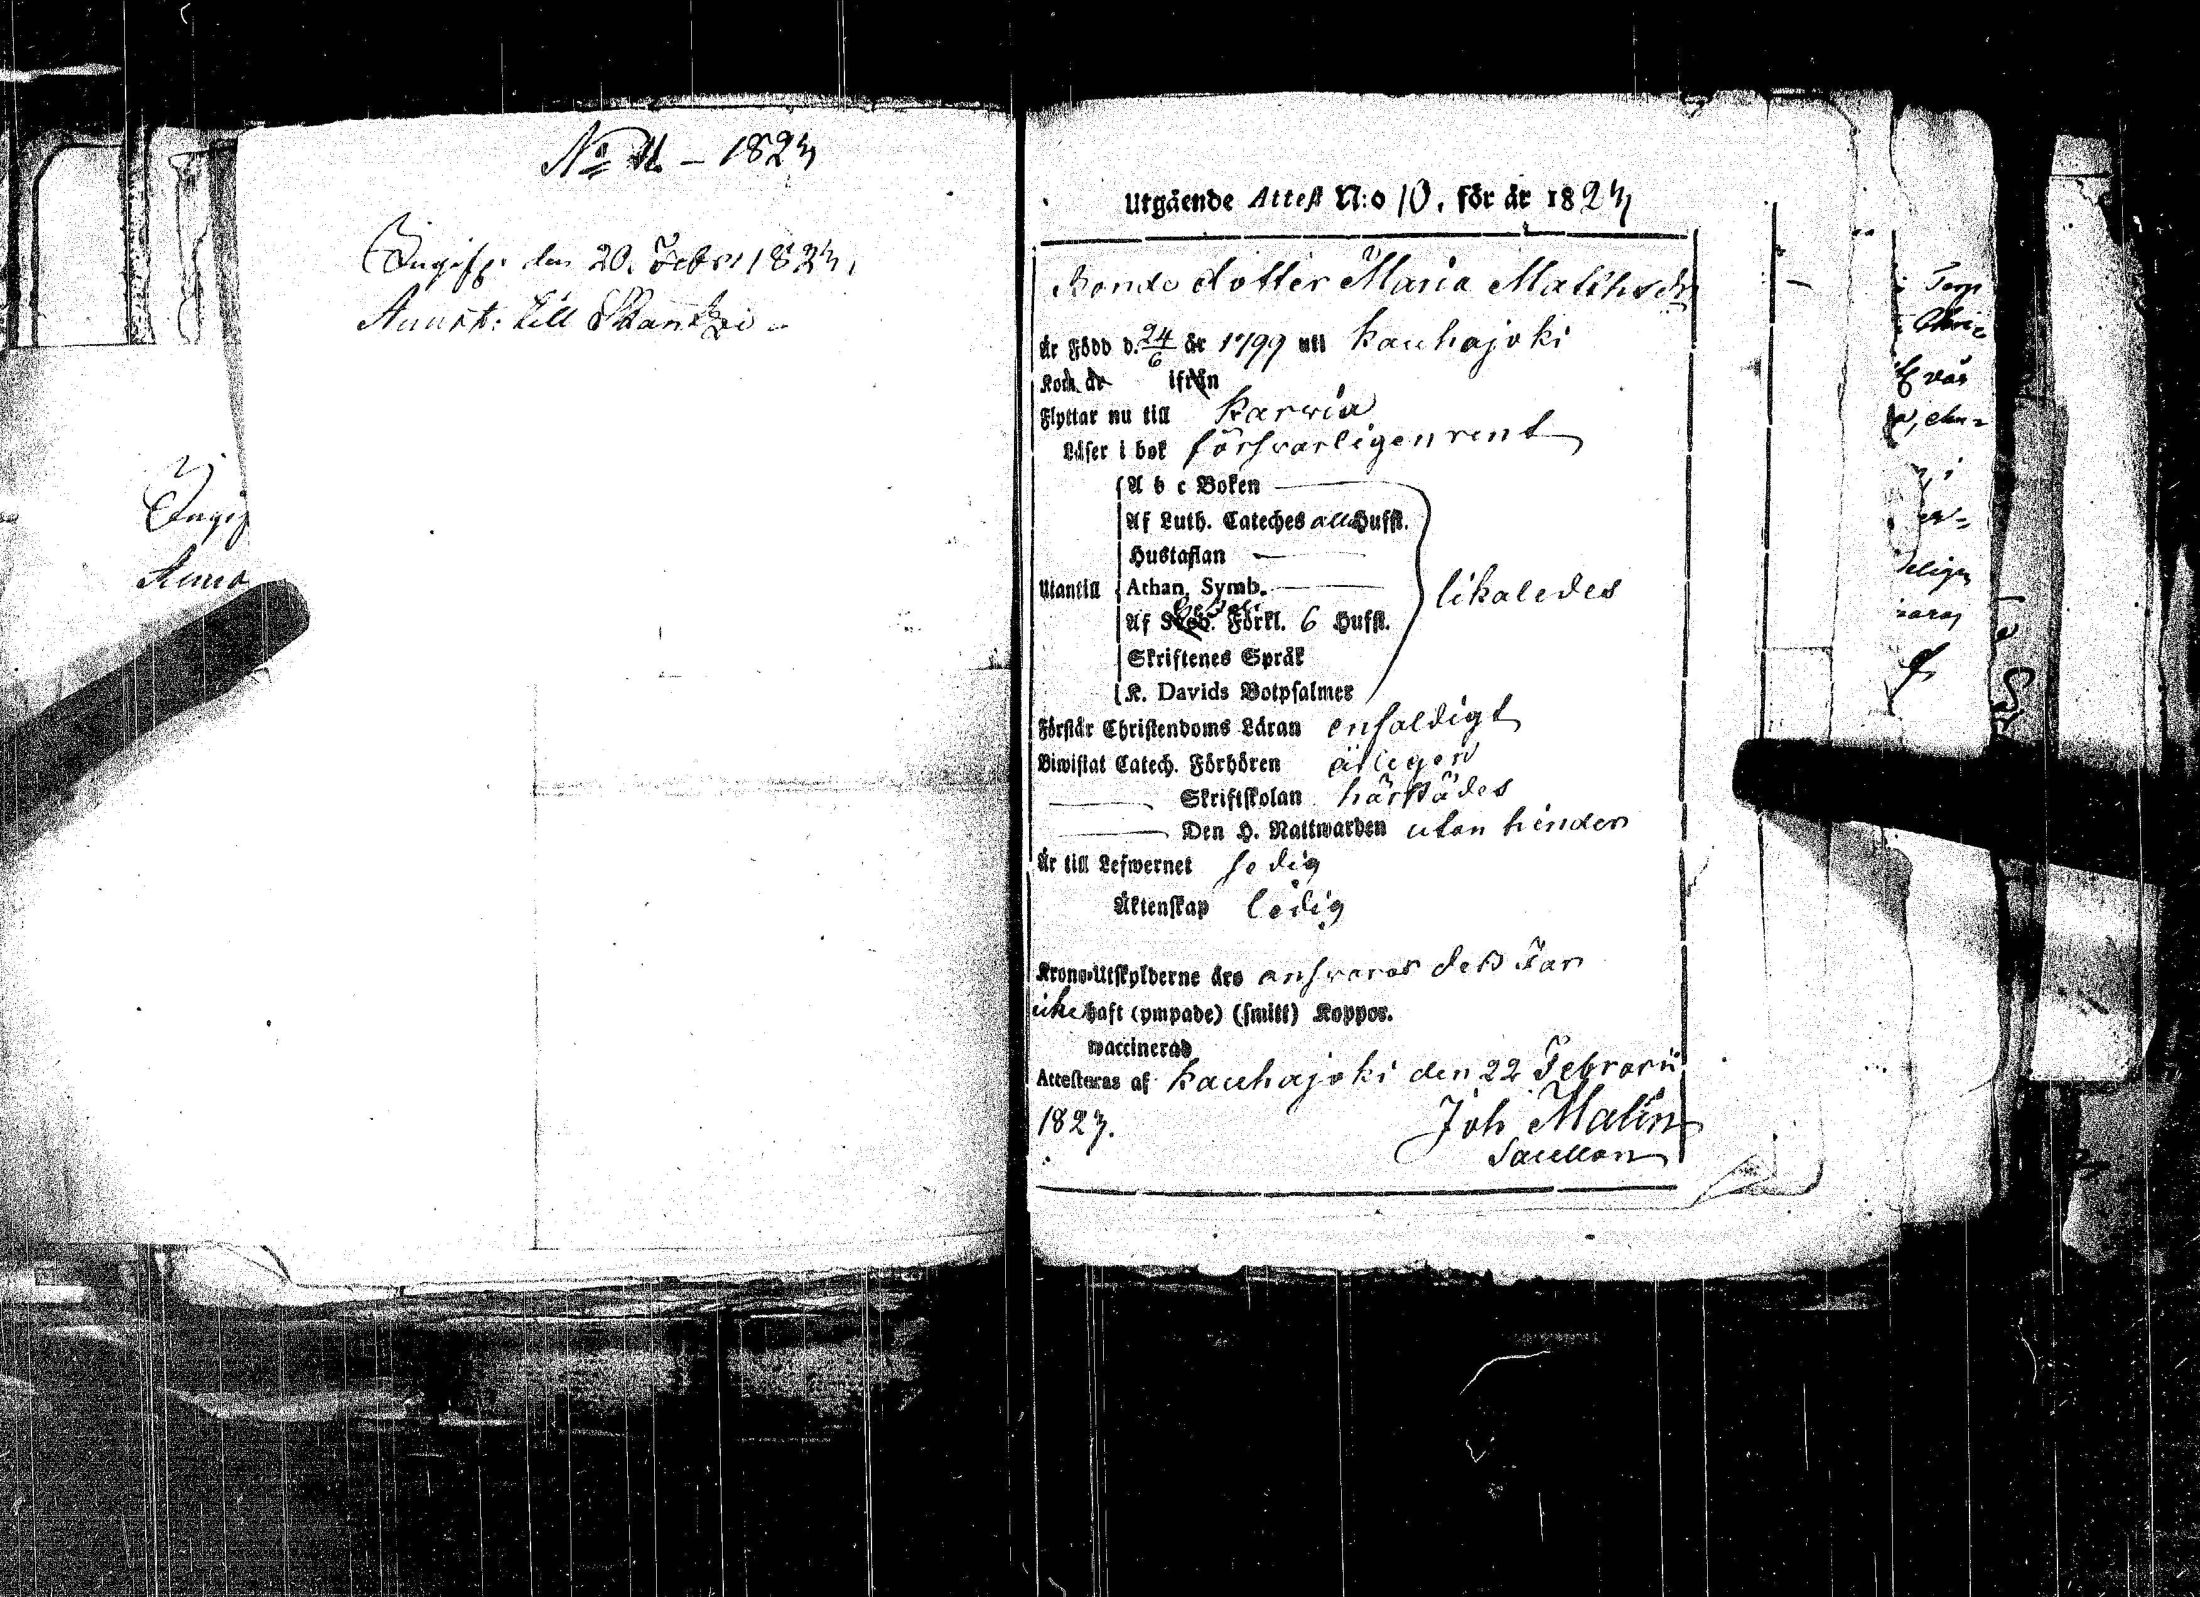 No 11. – 1823
den 20. Febr. 1823.
till
Utgående Attest N:o 10. för år 1823
Bonde dotter Maria Matthsdr
Är Född d. 24/6 år 1799 uti Kauhajoki
Kom år ifrån
Flyttar nu till Karwia
Läser i bok försvarligen rent
A b c Boken —
Af Luth. Cateches alla Hufst.
Hustaflan —
Utantill Athan. Symb. —
Af Förkl. 6 Hufst.
likaledes
Skriftenes Språk
K. Davids Botpsalmer
Förstår Christendoms Läran enfaldigt
Biwistat Catech. Förhören årligen
— Skriftskolan härstädes
— Den H. Nattwarden utan hinder
Är till Lefwernet sedig
Äktenskap ledig
Krono-Utskylderne äro ansvarar dess Far
icke haft (ympade) (smitt) Koppor.
waccinerad
Attesteras af Kauhajoki den 22 Februarii
1823.
Joh Malin
Sacellan